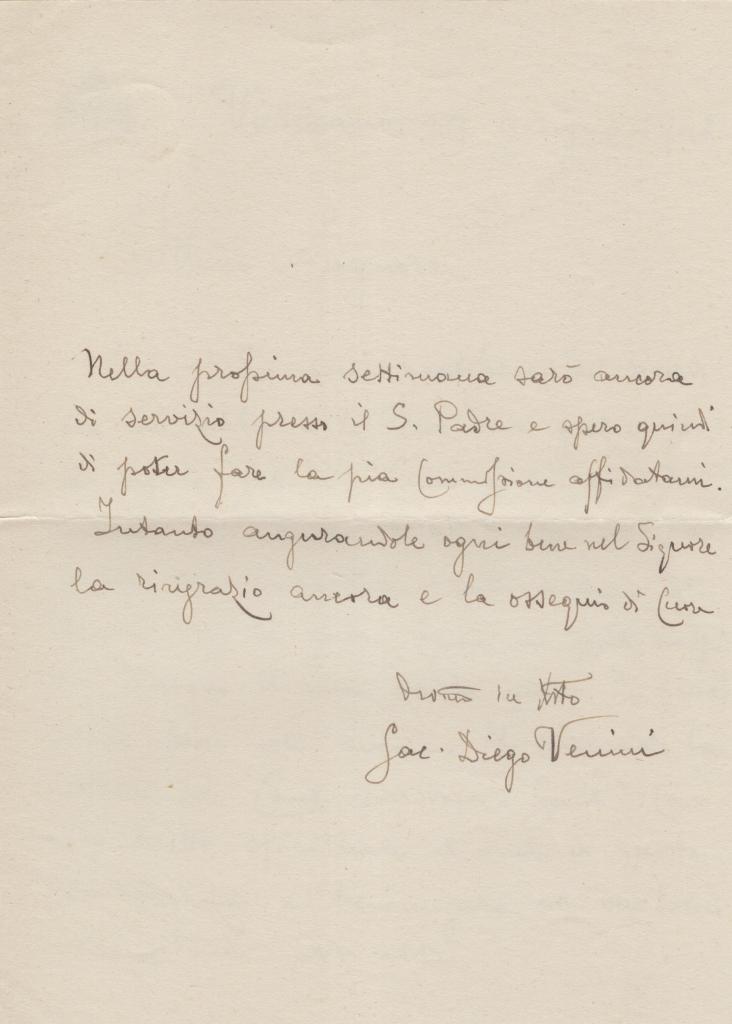 Nella prossima settimana sarò ancora
di servizio presso il S. Padre e spero quindi
di poter fare la pia Commissione affidatami.
Intanto augurandole ogni bene nel Signore
la ringrazio ancora e la ossequio di Cuore
Devmo in Xsto
Sac. Diego Venini